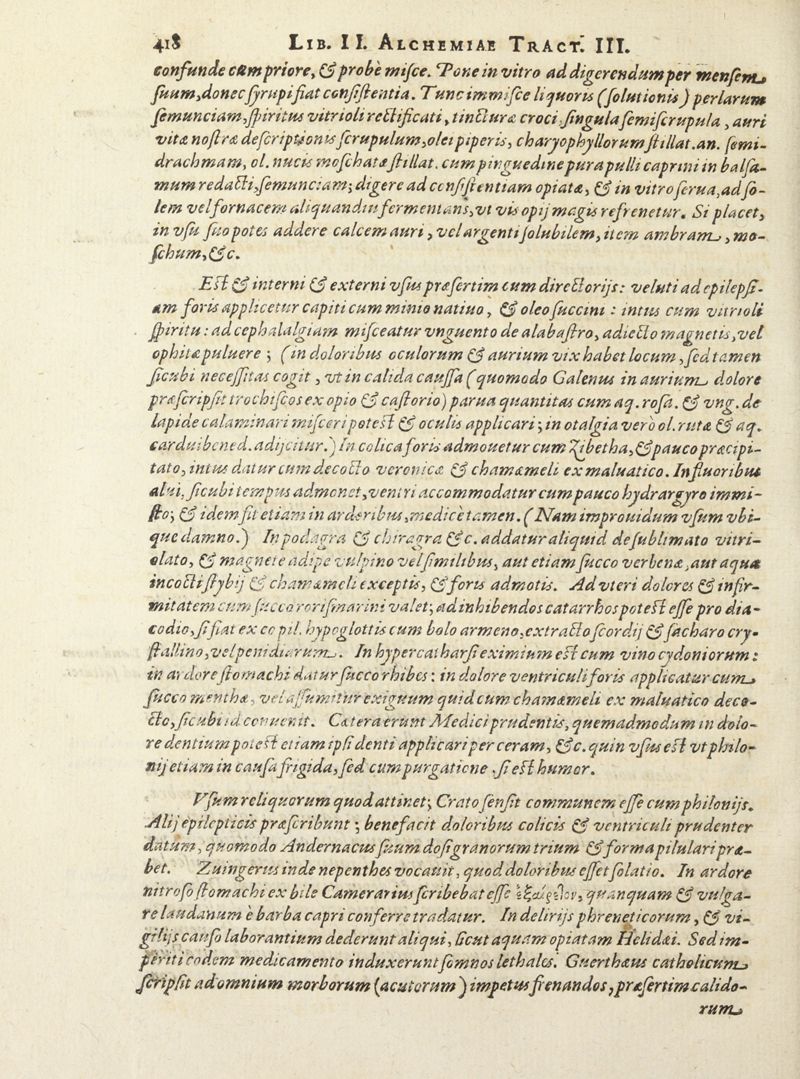 418 LIB. II. ALCHEMIAE TRACT. III.
confunde cum priore, & probè misce. Pone in vitro ad digerendum per mensem
suum, donec syrupi fiat consistentia. Tunc immisce liquoris (solutionis) perlarum
semunciam, spiritus vitrioli rectificati, tincturæ croci singula semiscrupula, auri
vitæ nostræ descriptionis scrupulum, olei piperis, charyophyllorum stillat. an. semi-
drachmam, ol. nucis moschatæ stillat. cum pinguedine pura pulli caprini in balsa-
mum redacti, semunciam; digere ad consistentiam opiatæ, & in vitro serua, ad so-
lem vel fornacem aliquandiu fermentans, vt vis opij magis refrenetur. Si placet,
in vsu suo potes addere calcem auri, vel argenti solubilem, item ambram, mo-
schum, &c.
Est & interni & externi vsus præsertim cum directorijs: veluti ad epilepsi-
am foris applicetur capiti cum minio natiuo, & oleo succini: intus cum vitrioli
spiritu: ad cephalalgiam misceatur vnguento de alabastro, adiecto magnetis, vel
ophitæ puluere; (in doloribus oculorum & aurium vix habet locum, sed tamen
sicubi necessitas cogit, vt in calida caussa (quomodo Galenus in aurium dolore
præscripsit trochiscos ex opio & castorio) parua quantitas cum aq. rosa. & vng. de
lapide calaminari misceri potest & oculis applicari; in otalgia verò ol. rutæ & aq.
cardui bened. adijcitur.) In colica foris admouetur cum Zibetha, & pauco præcipi-
tato, intus datur cum decocto veronicæ & chamæmeli ex maluatico. In fluoribus
alui, sicubi tempus admonet, ventri accommodatur cum pauco hydrargyro immi-
sto; & idem fit etiam in ardoribus, medicè tamen. (Nam improuidum vsum vbi-
que damno.) In podagra & chiragra &c. addatur aliquid de sublimato vitri-
olato, & magnete adipe vulpino vel similibus, aut etiam succo verbenæ, aut aqua
incocti stybij & chamæmeli exceptis, & foris admotis. Ad vteri dolores & infir-
mitatem cum succo rorismarini valet; ad inhibendos catarrhos potest esse pro dia-
codio, si fiat ex eo pil. hypoglottis cum bolo armeno, extracto scordij & sacharo cry-
stallino, vel penidiarum. In hypercatharsi eximium est cum vino cydoniorum:
in ardore stomachi datur succo rhibes: in dolore ventriculi foris applicatur cum
succo menthæ, vel assumitur exiguum quid cum chamæmeli ex maluatico deco-
cto, sicubi id conuenit. Cætera erunt Medici prudentis, quemadmodum in dolo-
re dentium potest etiam ipsi denti applicari per ceram, &c. quin vsus est vt philo-
nij etiam in causa frigida, sed cum purgatione, si est humor.
Vsum reliquorum quod attinet; Crato sensit communem esse cum philonijs.
Alij epilepticis præscribunt; benefacit doloribus colicis & ventriculi prudenter
datum, quomodo Andernacus suum dosi granorum trium & forma pilulari præ-
bet. Zuingerus inde nepenthes vocauit, quod doloribus esset solatio. In ardore
nitroso stomachi ex bile Camerarius scribebat esse quanquam & vulga-
re laudanum è barba capri conferre tradatur. In delirijs phreneticorum, & vi-
gilijs causo laborantium dederunt aliqui, sicut aquam opiatam Helidæi. Sed im-
periti eodem medicamento induxerunt somnos lethales. Guerthæus catholicum
scripsit ad omnium morborum (acutorum) impetus frenandos, præsertim calido-
rum